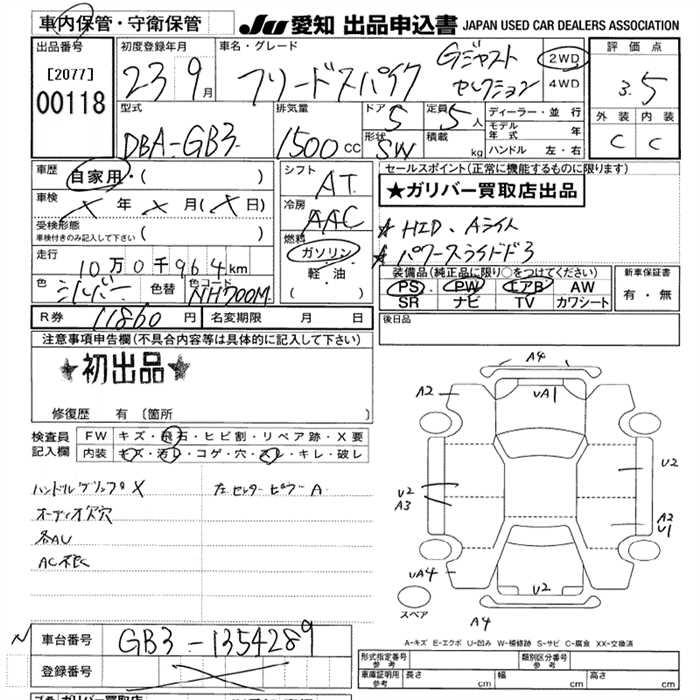 車内保管・守衛保管
JU 愛知 出品申込書 JAPAN USED CAR DEALERS ASSOCIATION
出品番号 [2077] 00118
初度登録年月 23 9月
車名・グレード フリードスパイク Gジャスト セレクション
2WD
4WD
評価点 3.5
外装 内装
C C
型式 DBA-GB3
排気量 1500cc
ドア 5
形状 SW
定員 5人
積載 kg
ディーラー・並行
モデル年式 年
ハンドル 左・右
車歴 自家用・( )
車検 X年X月(X日)
受検形態 ( )
車検付きのみ記入して下さい
走行 10万0千964km
色 シルバー 色替 色コード NH700M
シフト AT
冷房 AAC
燃料 ガソリン
軽・油
( )
セールスポイント(正常に機能するものに限ります)
★ガリバー買取店出品
★HID、Aライト
★パワースライドドア
装備品(純正品に限り○をつけてください)
PS PW エアB AW
SR ナビ TV カワシート
新車保証書
有・無
R券 11860円 名変期限 月 日
後日品
注意事項申告欄(不具合内容等は具体的に記入して下さい)
★初出品★
修復歴 有 〔箇所 〕
検査員記入欄
FW キズ・飛石・ヒビ割・リペア跡・X要
内装 キズ・汚レ・コゲ・穴・スレ・キレ・破レ
ハンドルグリップX 左センターピラーA
オーディオ欠穴
各AU
A4
A2 UA1
U2
U2
A3
A2
U1
UA4 U2
スペア A4
A-キズ E-エクボ U-凹み W-補修跡 S-サビ C-腐食 XX-交換済
車台番号 GB3-1354289
登録番号
形式指定番号 参考 類別区分番号 参考
車庫証明用 参考 長さ cm 幅 cm 高さ cm
ガリバー買取店